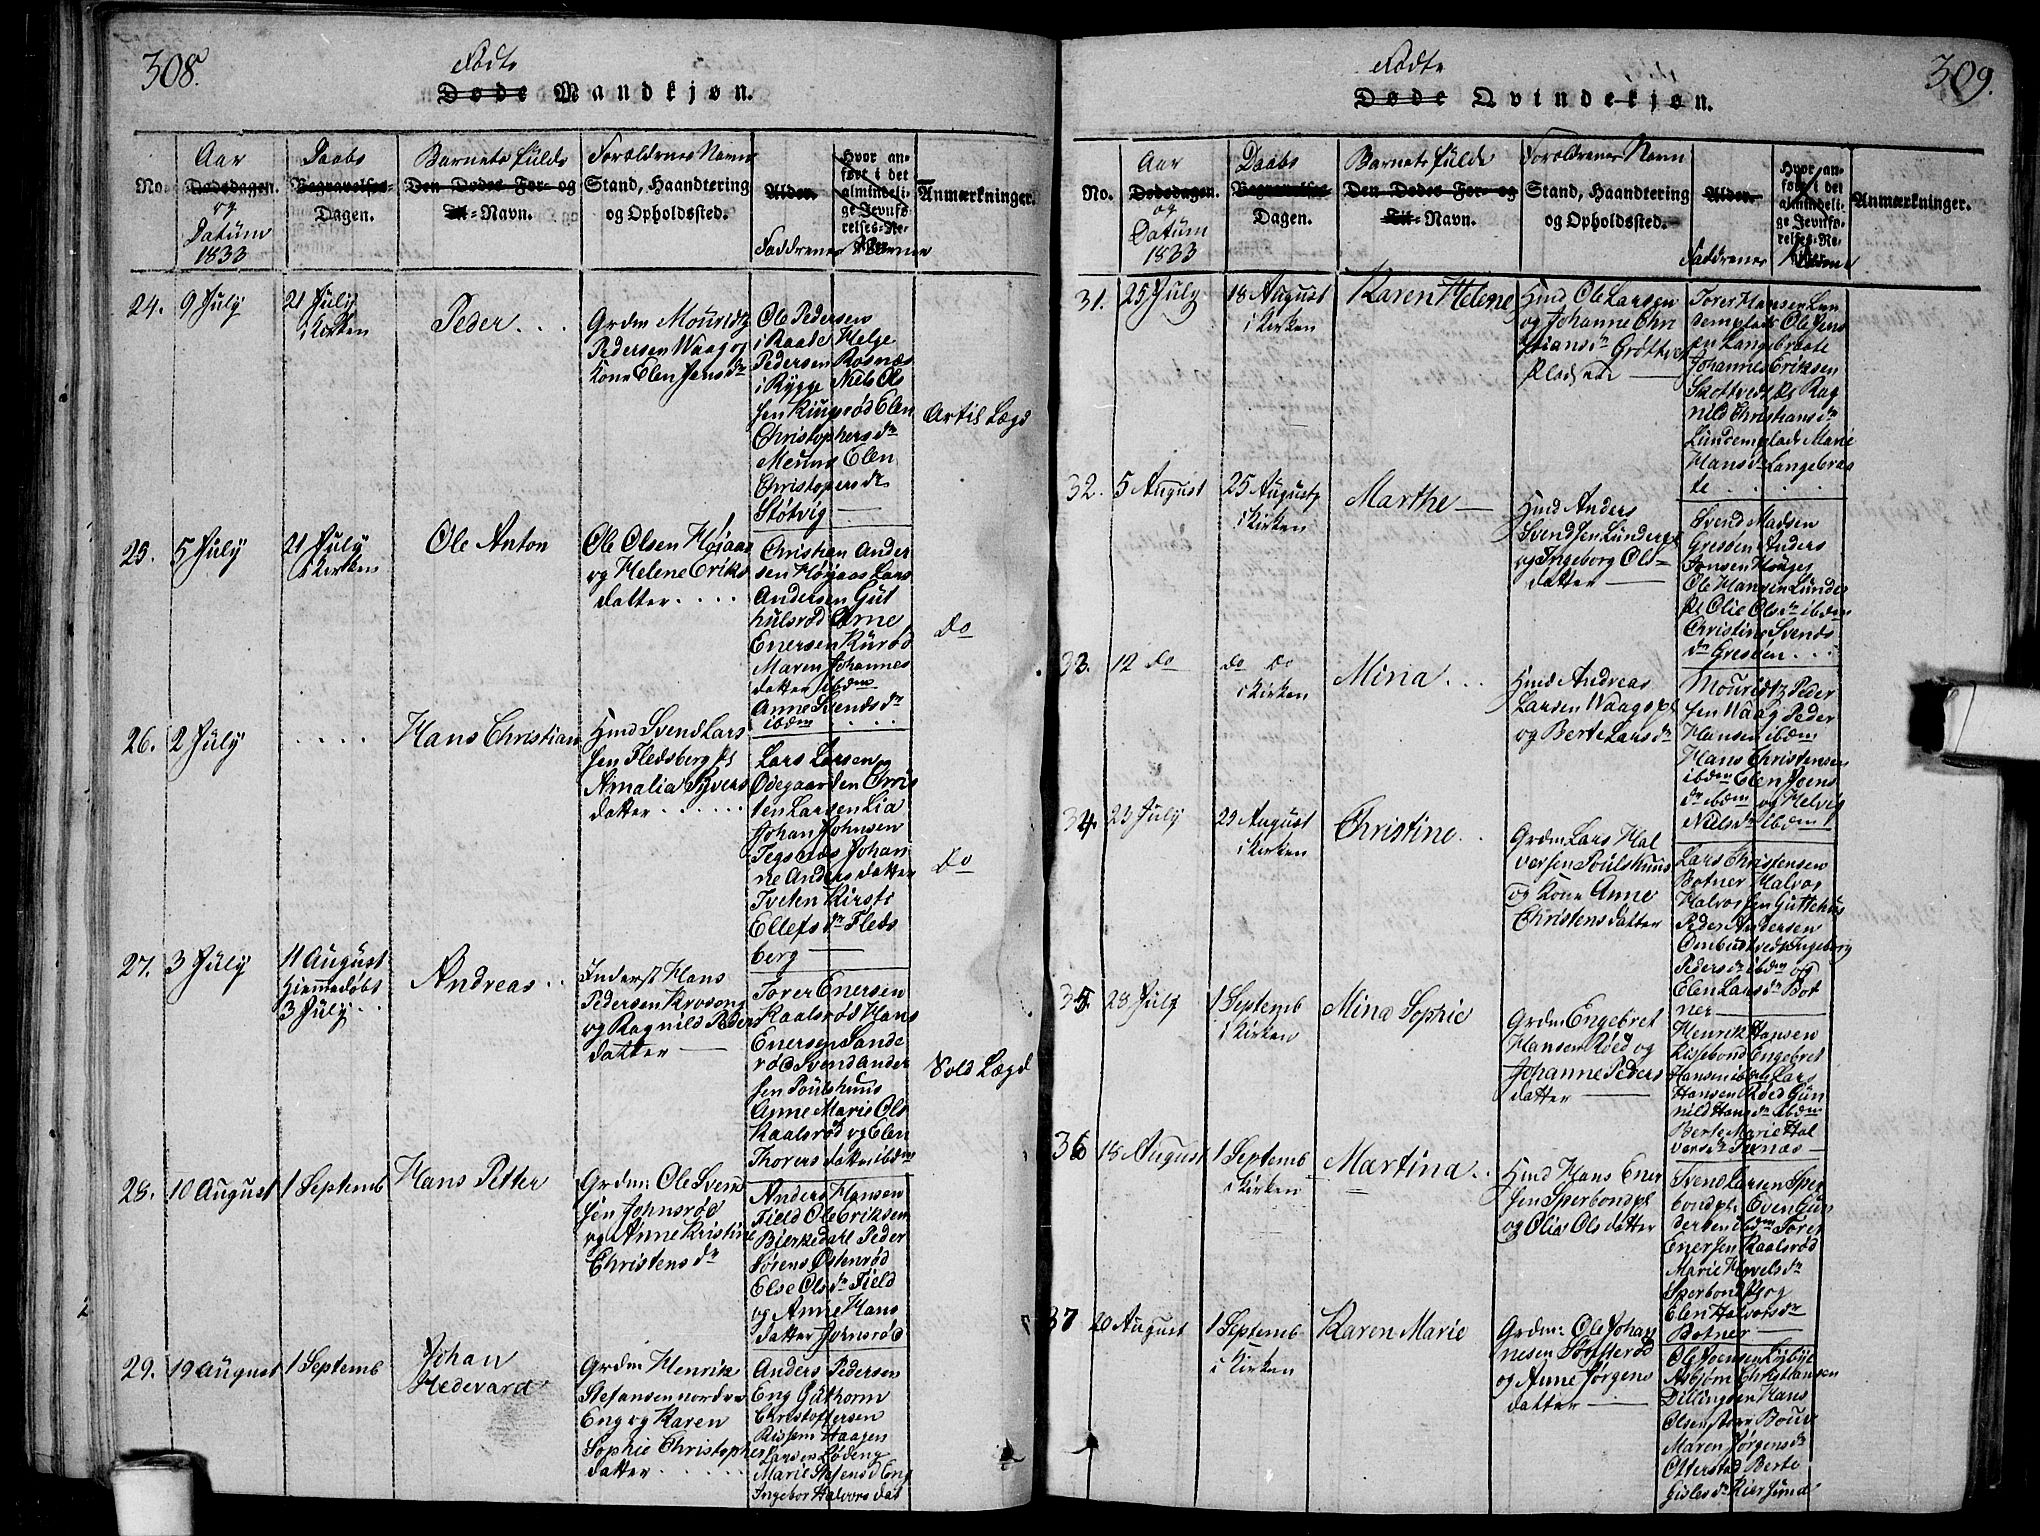 308.
Fødte
Døde Mandkjøn.
No.
Aar
Dødsdagen.
og
Datum
1833
Daabs
Begravelses-
Dagen.
Barnets fulde
Den Dødes For- og
Til-Navn.
Forældrenes Navn
Stand, Haandtering
og Opholdssted.
Alder.
Hvor an-
ført i det
almindeli-
ge Jevnfø-
relses-Re-
Faddernes Navne
Anmærkninger.
24. 9 July
21 July
i Kirken
Peder . . .
Grdm Mouridtz
Pedersen Waag og
Kone Elen Jensdr
Ole Pedersen
i Raade Helge
Pedersen Rosnæs
i Rygge Niels Ol
sen Ringsrød Elen
Christophersdr
Meuns Elen
Christopersdr
Støtvig
Artil Lægd
25. 5 July
21 July
i Kirken
Ole Anton
Ole Olsen Højaas
og Helene Eriks
datter . . . .
Christian Ander
sen Højaas Lars
Andersen Gut
hulsrød Arne
Enersen Kurød
Maren Johannes
datter ibdm
Anne Svendsdr
ibdm . . . .
Do
26. 2 July
. . . .
Hans Christian
Hmd Svend Lars
sen Fledsberg pl
Amalia Syvers
datter . . . . .
Lars Larsen
Odegaarden Chris
ten Larsen Lia
Johan Johnsen
Tegsnæs Johan
ne Andersdatter
Tveten Kirsti
Ellefsdr Fleds
berg
Do
27. 3 July
11 August
Hjemmedøbt
3 July . .
Andreas . .
Inderst Hans
Pedersen Krosong
og Ragnild Peders
datter
Torer Enersen
Kaalsrød Hans
Enersen Sande
rød Svend Ander
sen Poulshuus
Anne Maris Ols
Kaalsrød og Elen
Thorersdatter ibdm
Sold Lægd
28. 10 August
1 Septemb
Hans Petter
Grdm Ole Svend
sen Johnsrød
og Anne Kristine
Christensdr
Anders Hansen
Field Ole Eriksen
Bierkedahl Peder
Sørens Østenrød
Else Olsdr Field
og Anne Hans
datter Johnsrød
29. 19 August
1 Septemb
Johan
Hedevard
Grdm Henrik
Stefansen nordre
Eng og Karen
Sophie Christopher
datter . . . . .
Anders Pedersen
Eng Guthorm
Christoffersen
Rissem Haagen
Larsen Løden
Marie Stefensd Eng
Ingebor Halvors dat
309.
Fødte
Døde Qvindekjøn.
No.
Aar
Dødsdagen.
og
Datum
1833
Daabs
Begravelses
Dagen.
Barnets fulde
Den Dødes For- og
Til-Navn.
Forældrenes Navn
Stand, Haandtering
og Opholdssted.
Alder.
Hvor an-
ført i det
almindeli-
ge Jevnfø-
relses-Re-
Faddrenes
Anmærkninger.
31. 25 July
18 August
i Kirken
Karen Helene
Hmd Ole Larsen
og Johanne Chri
stiansdr Grøttvet
Pladsen
Torer Hansen Lun
demplads Ole Jens
en Langebraate
Johannes Eriksen
Skottvedt pl Rag
nild Christiansdr
Lundemplads Marie
Hansdr Langebraa
te . . . .
32. 5 August
25 August
i Kirken
Marthe
Hmd Anders
Svendsen Lundepl
og Ingeborg Ols=
datter
Svend Madsen
Gresøen Anders
Jonsen Houges
Ole Hansen Lunde
pl Olie Olsdr ibdm
Christine Svends
dr Gresøen . . .
33. 12 do
do do
i Kirken
Mina . . .
Hmd Andreas
Larsen Waagspl
og Berte Larsdr
Mouridtz Peder
sen Waag Peder
Hansen ibdm
Hans Christensen
ibdm Elen Joens
dr ibdm og Helvig
Nielsdr ibdm
34. 23 July
29 August
i Kirken
Christine . .
Grdm Lars Hal
versen Poulshuus
og Kone Anne
Christensdatter
Lars Christensen
Botner Halvor
Halvorsen Guttehus
Peder Andersen
Ombudstvedt Ingeborg
Pedersdr ibdm og
Elen Larsdr Bot
ner
35. 28 July
1 Septemb
i Kirken
Mina Sophie
Grdm Engebret
Hansen Røed og
Johanne Peders
datter
Henrik Hansen
Lissebond Engebret
Hansen ibdm Lars
Hansen Røed Gun
nild Hansdr ibdm
Berte Marie Hal
versdr Fuxnæs
36 18 August
1 Septemb
i Kirken
Martina . .
Hmd Hans Ener
sen Sperbondpl
og Olia Olsdatter
Svend Larsen Sper
bondpl Even Gun
dersen ibdm Torer
Enersen Kaalsrød
Marie Hovelsdr
Sperbond pl og
Elen Halvorsdr
Botner
37 20 August
1 Septemb
i Kirken
Karen Marie
Grdm Ole Johan
nesen Tofterød
og Anne Jørgens
datter
Ole Joensen Rybye
Asbjørn Christiansen
Dillingøen Hans
Olsen store Boue
Maren Jørgensdr
Otterstad Berte
Gislesdr Kiersund